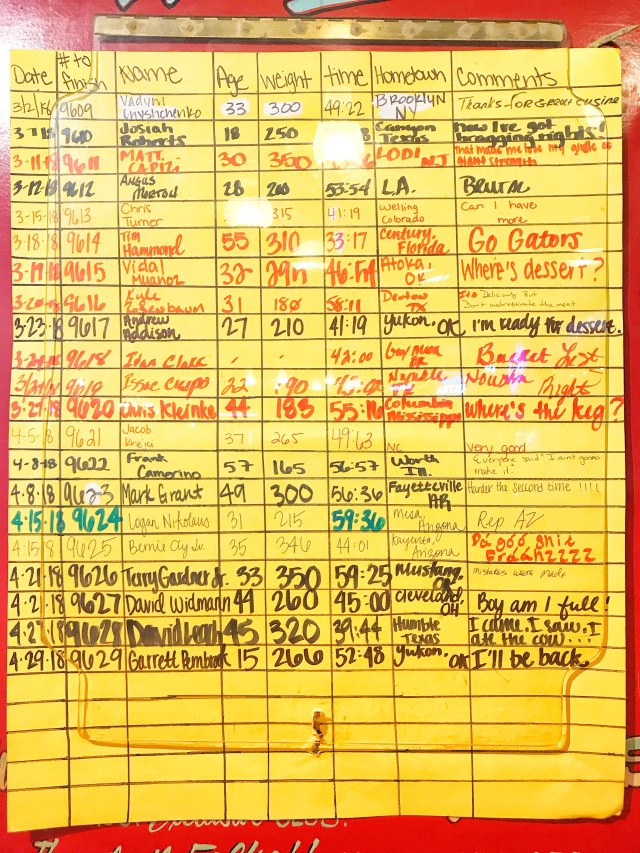 Date # to finish Name Age Weight time Hometown Comments
3/2/18 9609 Vadym 33 300 49:22 BROOKLYN NY Thanks for GREAT cusine
3-7-18 9610 Josiah Roberts 18 250 Canyon Texas now I've got bragging rights!
3-11-18 9611 MATT CAPIZI 30 350 LODI NJ that made me lose my giant strength
3-12-18 9612 ANGUS MORTON 28 200 53:54 L.A. BRUTAL
3-15-18 9613 Chris Turner 315 41:19 Welling Colorado Can I have more
3-18-18 9614 Tim Hammond 55 310 33:17 Century, Florida Go Gators
9615 Vidal Munoz 32 46:54 Atoka, OK Where's dessert?
9616 Kyle 31 180 58:11 Denton TX Delicious But Don't underestimate the meat
3-23-18 9617 Andrew Addison 27 210 41:19 Yukon. OK I'm ready for dessert.
9618 Ivan Clark - - 42:00 Bucket List
9619 Issac 22 Right
3-27-18 9620 Chris Kleinke 44 183 55:16 Columbia Mississippi where's the keg?
4-5-18 9621 Jacob 37 265 49:63 NC very good
4-8-18 9622 Frank Camerino 57 165 56:57 Worth IL. "Everyone said "I aint gonna make it."
4-8-18 9623 Mark Grant 49 300 56:36 Fayetteville AR Harder the second time !!!!
4-15-18 9624 Logan Nikolaus 31 215 59:36 Mesa, Arizona Rep AZ
4-15-18 9625 Bernie Cly Jr. 35 346 44:01 Kayenta, Arizona
4-21-18 9626 Terry Gardner Jr. 33 350 59:25 Mustang, OK mistakes were made
9627 David Widmann 44 260 45:00 Cleveland, OH Boy am I full!
4-27-18 9628 David Leach 45 320 39:44 Humble Texas I came, I saw, I ate the cow...
4-29-18 9629 Garrett 15 266 52:48 Yukon. OK I'll be back